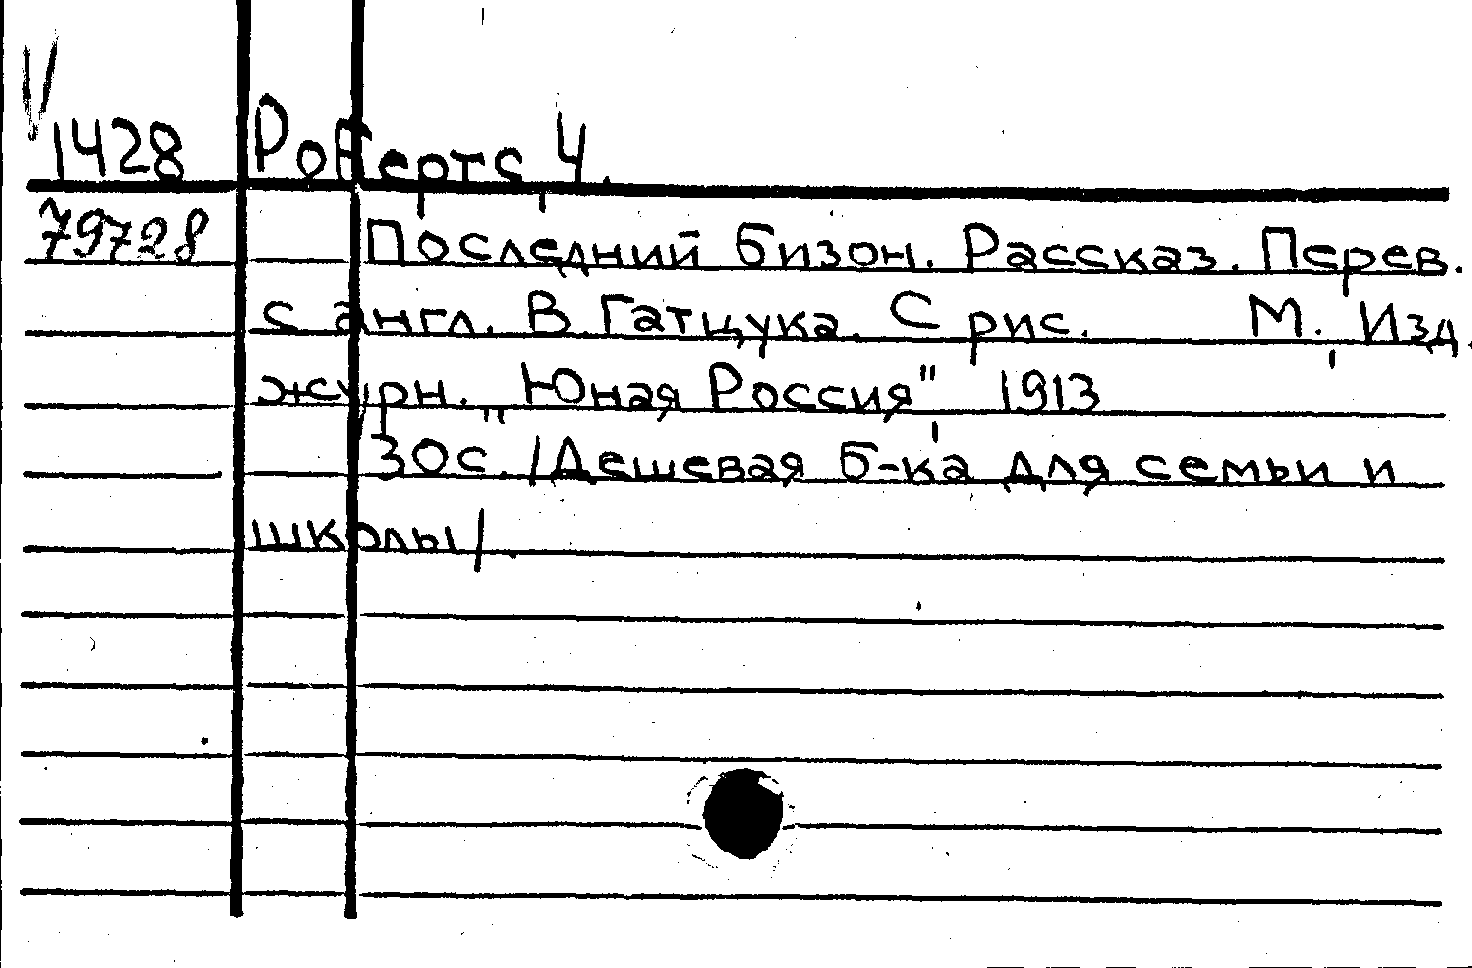 1428 Робертс, Ч.
79728 Последний бизон. Рассказ. Перев.
с англ. В. Гатцука. С рис. М., Изд.
журн. „Юная Россия", 1913
30с. /Дешевая б-ка для семьи и
школы/.